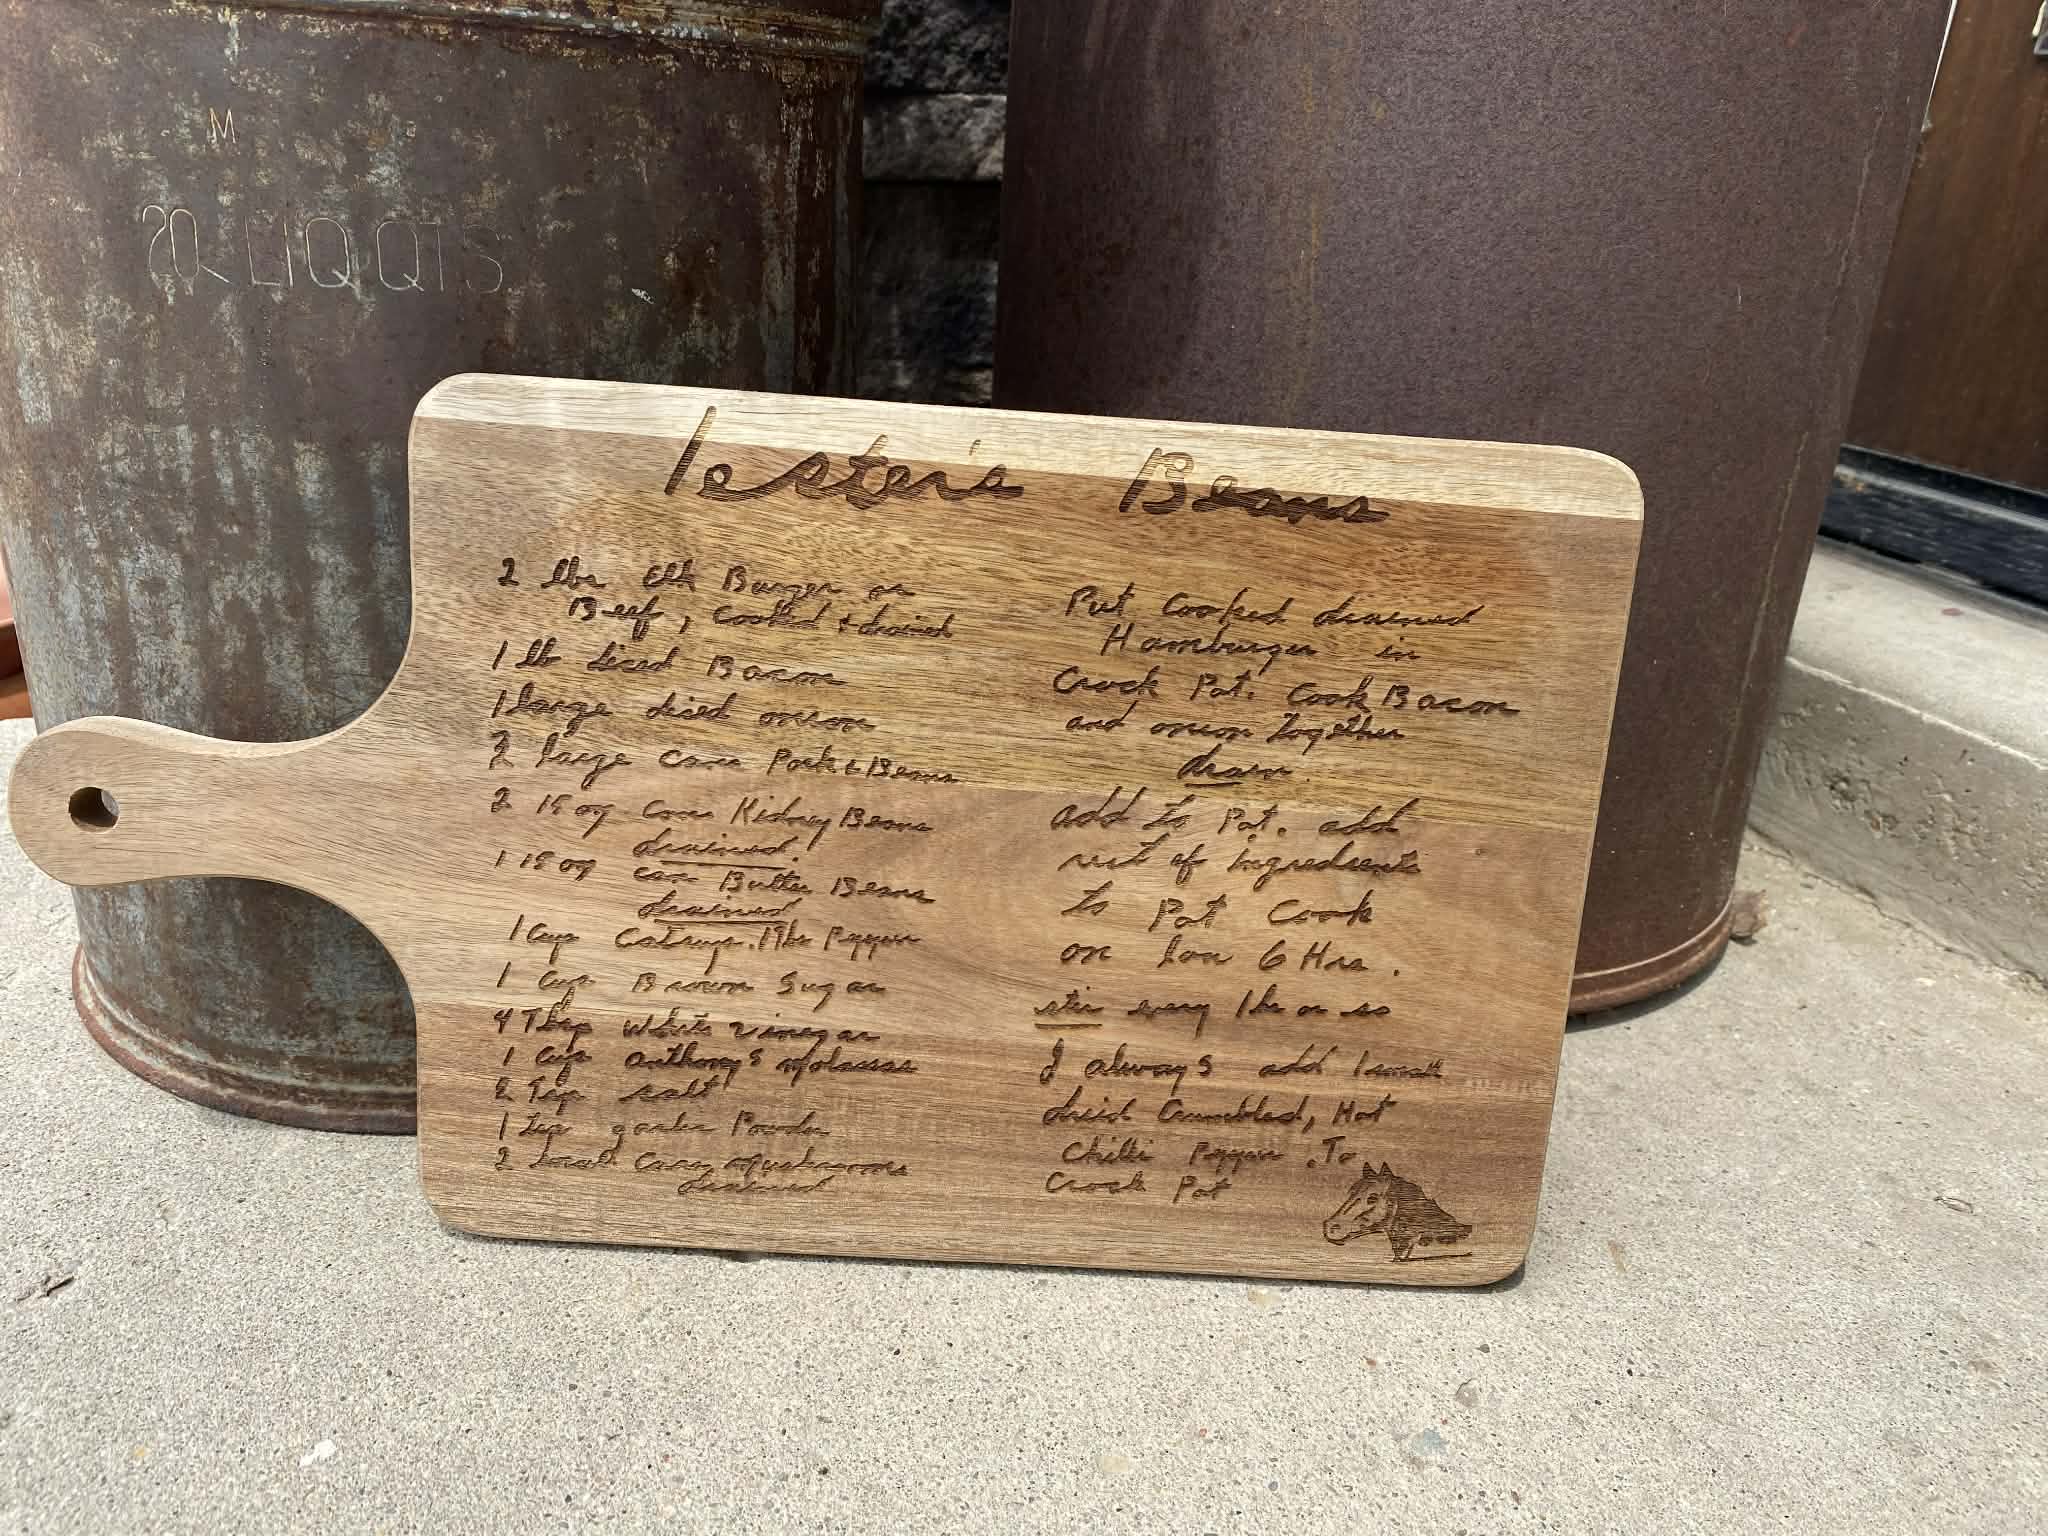 M
20 LIQ QTS
Lester's Beans
2 lbs Elk Burger or
Beef, cooked & drained
1 lb diced Bacon
1 large diced onion
2 large cans Pork & Beans
2 15 oz cans Kidney Beans
drained.
1 15 oz can Butter Beans
drained
1 Cup Catsup. Pepper
1 Cup Brown Sugar
4 Tbsp white vinegar
1 Cup anthonys molasses
2 Tsp salt
1 Tsp garlic Powder
2 small Cans Mushrooms
drained
Put Cooked drained
Hamburger in
Crock Pot. Cook Bacon
and onion together
drain.
add to Pot. add
rest of Ingredients
to Pot Cook
on low 6 Hrs.
stir every 1 hr or so
I always add 1 small
dried Crumbled, Hot
Chilli Pepper. To
Crock Pot